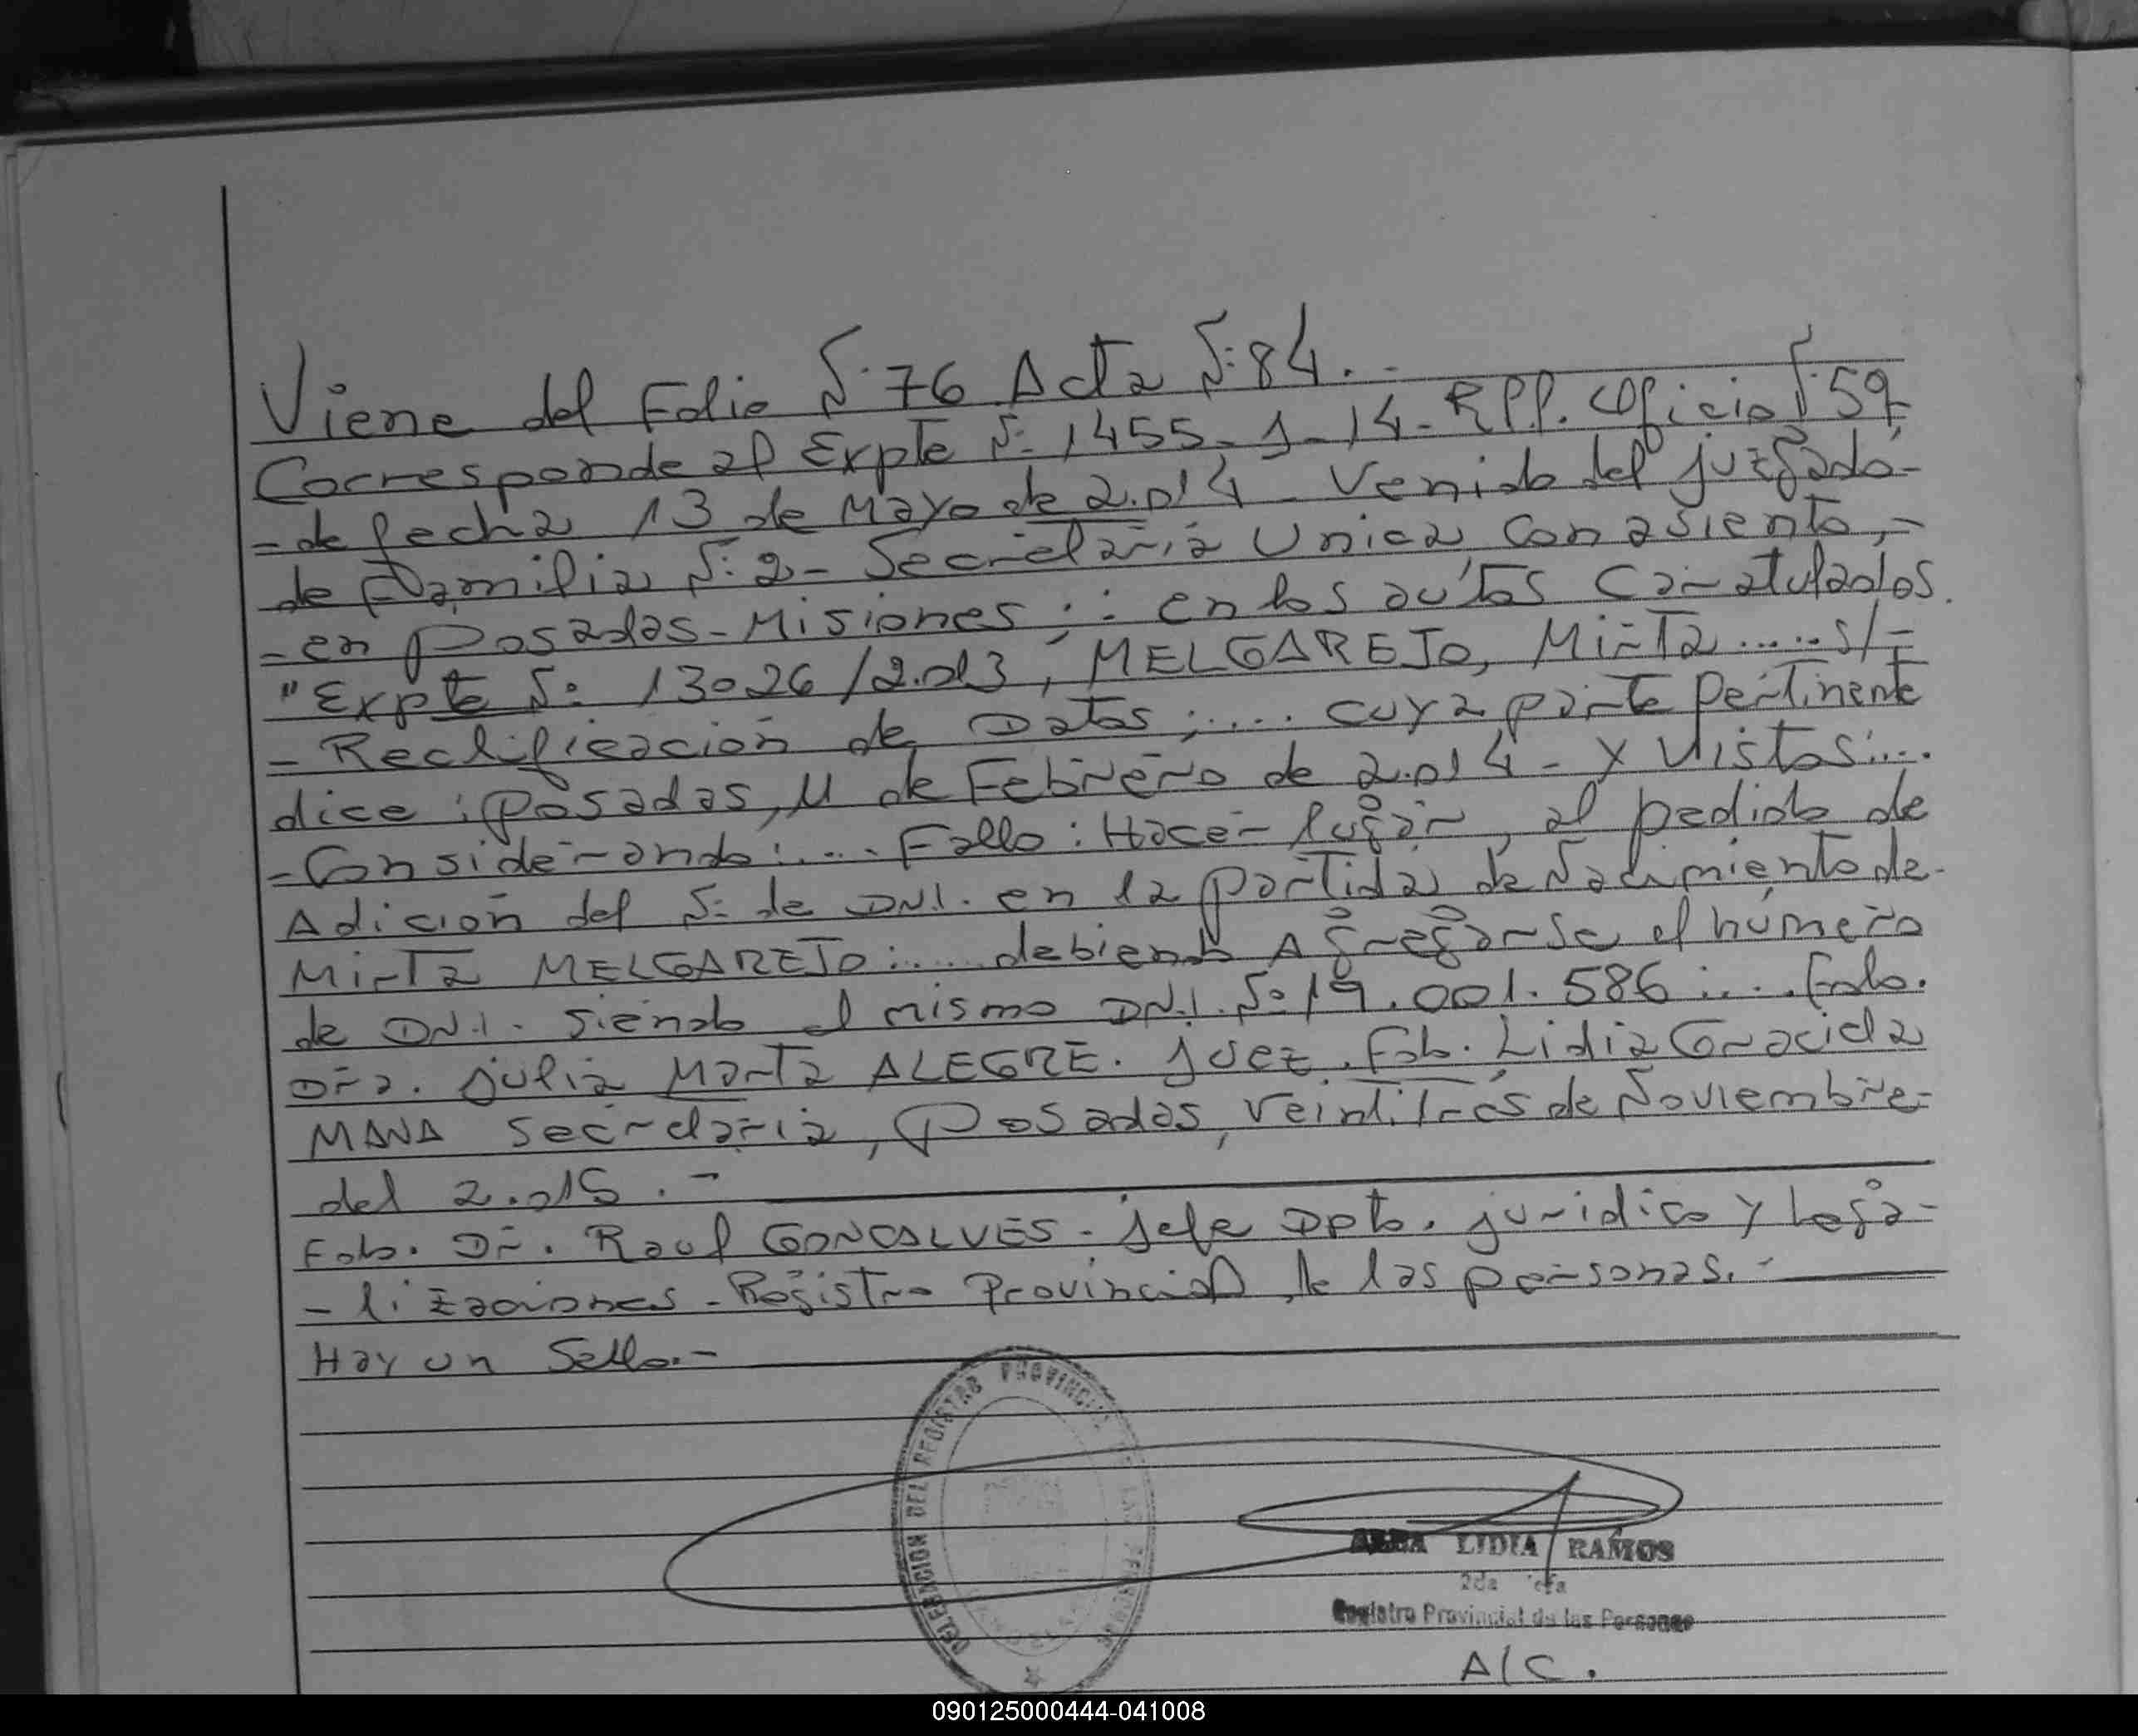 Viene del Folio N: 76 Acta N: 84. -
Corresponde al Expte N: 1455-J-14- RPP. Oficio N: 59
- de fecha 13 de Mayo de 2.014 - Venido del juzgado -
de Familia N: 2 - Secretaria Unica con asiento, -
- en Posadas - Misiones ; : en los autos Caratulados.
"Expte N: 13026/2.013, MELGAREJO, Mirta ..... s/=
- Rectificación de Datos; .... cuya parte pertinente
dice : Posadas, 11 de Febrero de 2.014 - y Vistos: ...
- Considerando: .... Fallo: Hacer lugar, al pedido de
Adición del N: de DN.I. en la partida de Nacimiento de -
Mirta MELGAREJO: .... debiendo Agregarse el número
de DN.I. siendo el mismo DN.I. N: 19.001.586 : .... Fdo.
Dra. Julia Marta ALEGRE. Juez. Fdo. Lidia Graciela
MANA Secretaria, Posadas, veintitres de Noviembre -
del 2.015 . -
Fdo. Dr. Raul GONCALVES - Jefe Dpto. juridico y Lega-
- lizaciones - Registro Provincial de las personas. -
Hay un Sello. -
DELEGACION DEL REGISTRO PROVINCIAL DE LAS PERSONAS
LIDIA RAMOS
2da
Registro Provincial de las Personas
A/C.
090125000444-041008